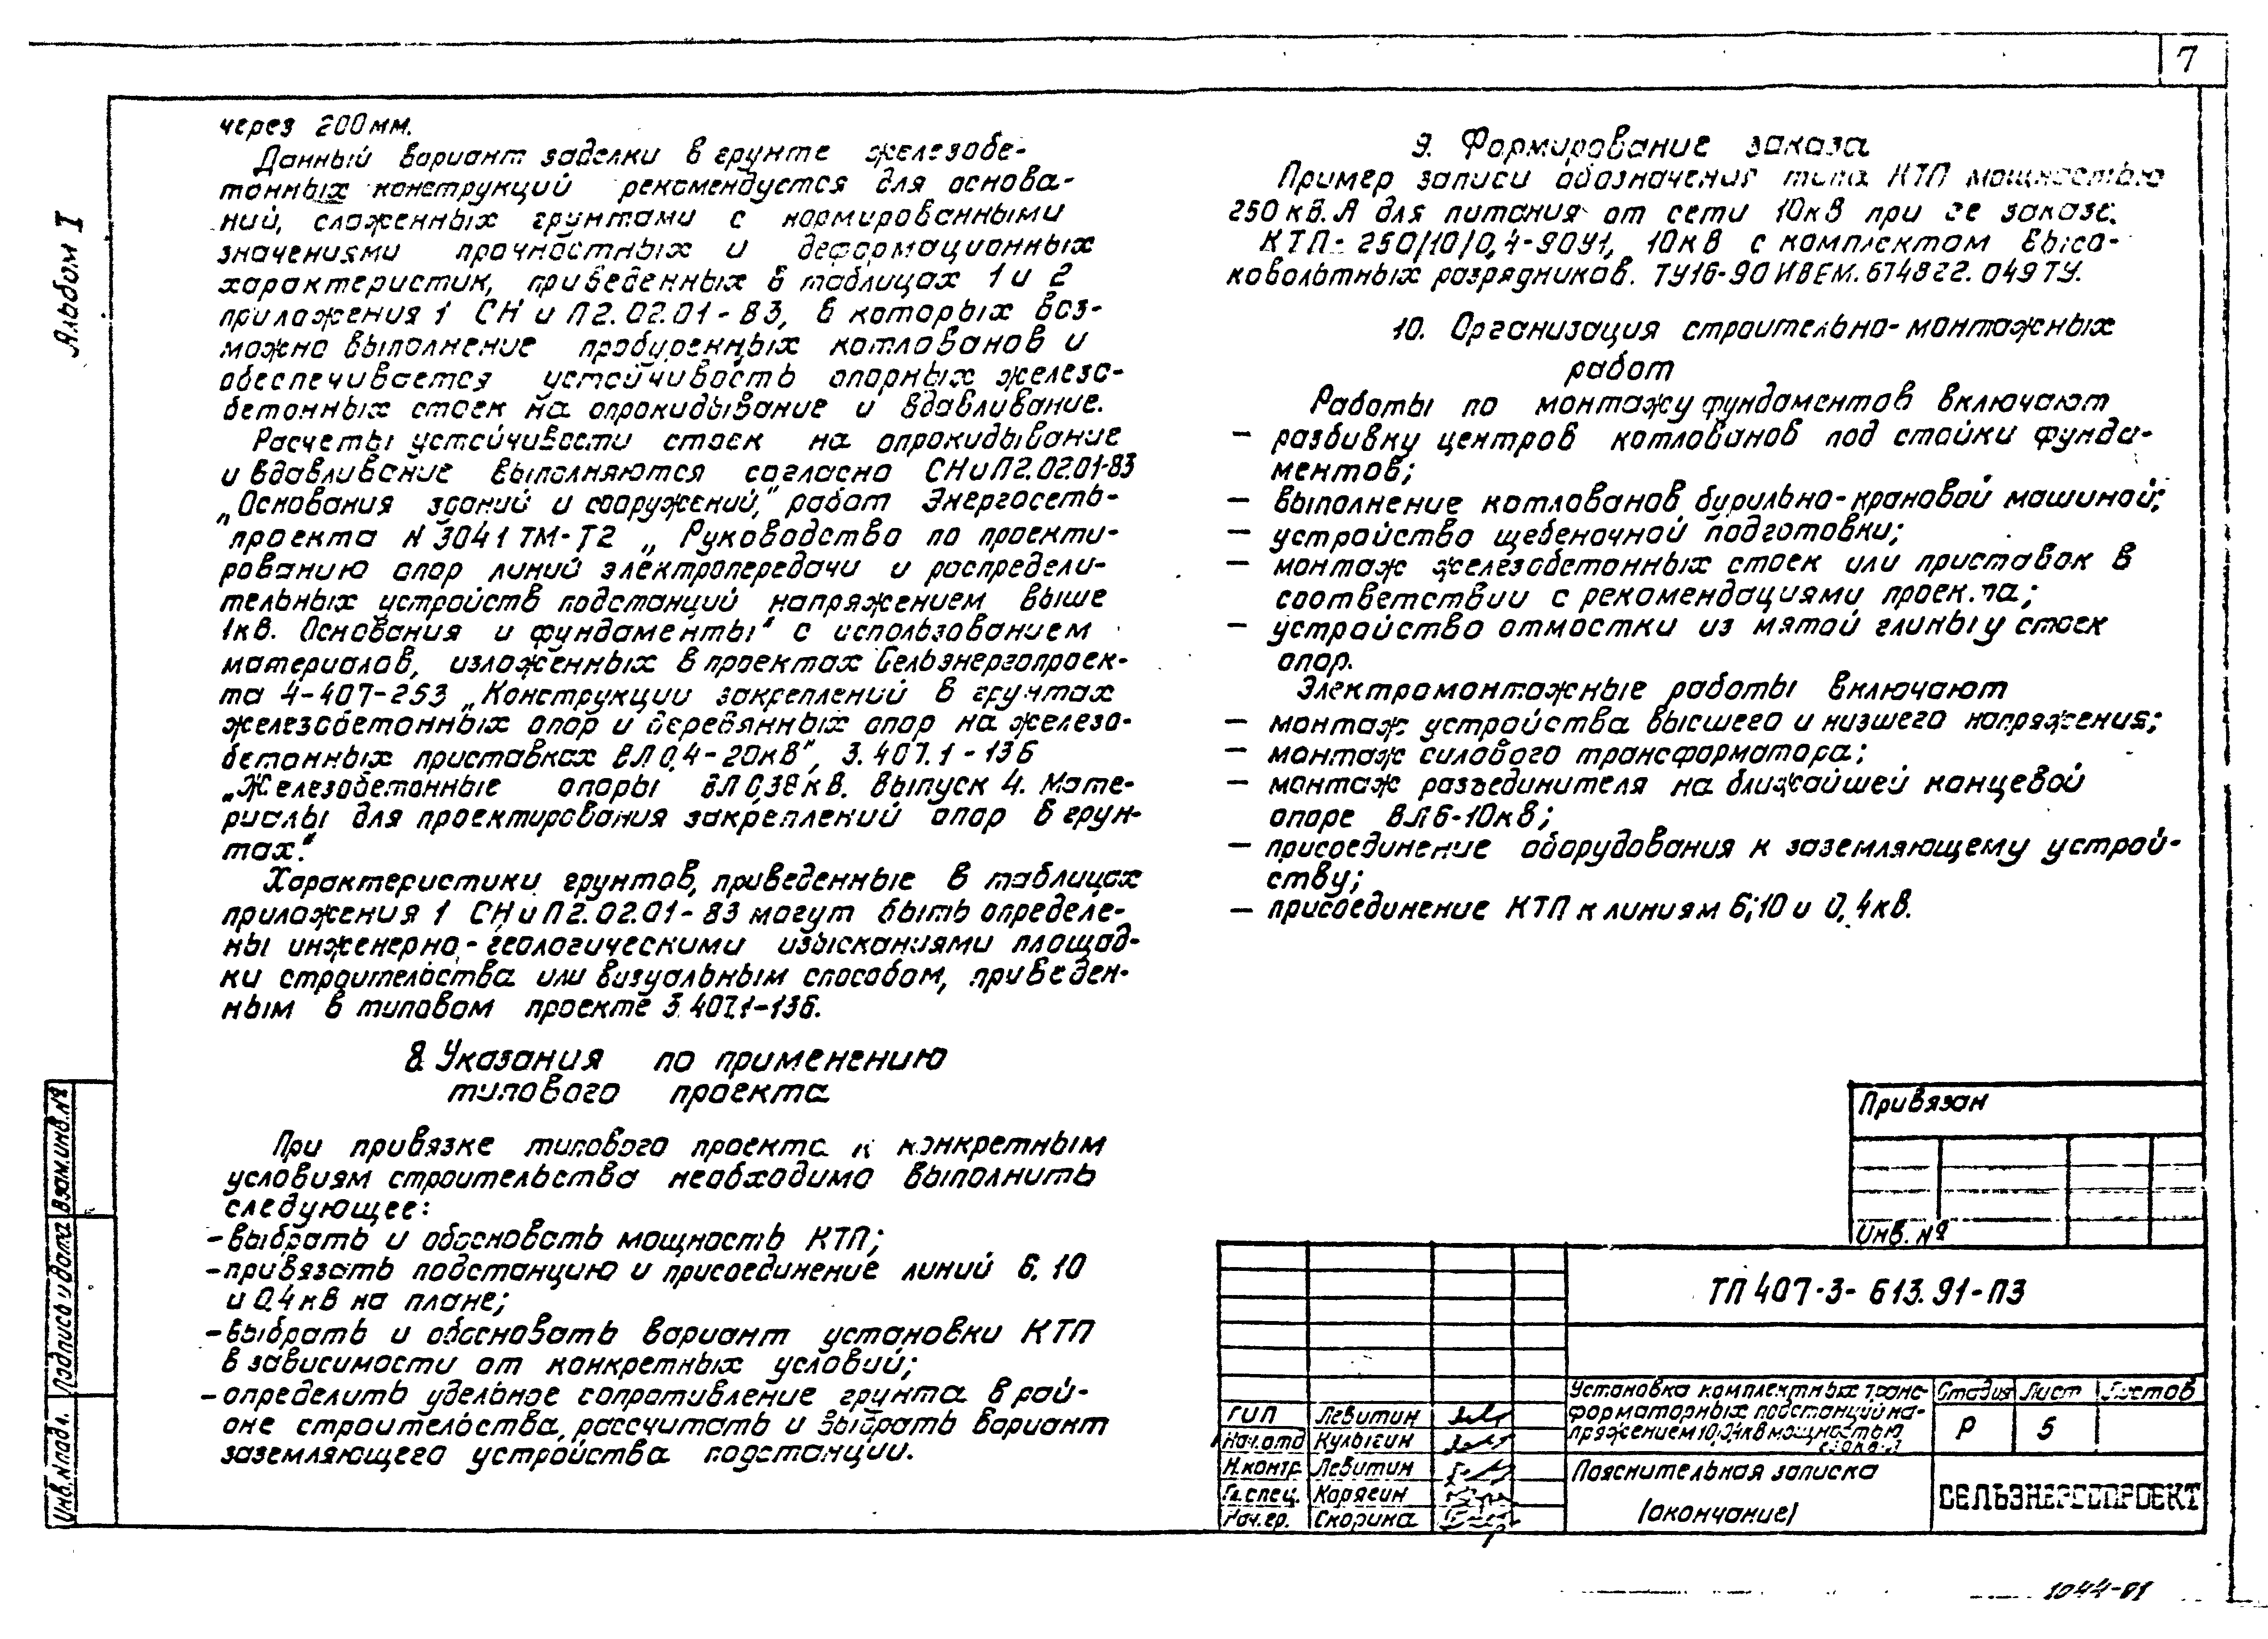 7
Альбом I
через 200мм.
Данный вариант заделки в грунте железобе-
тонных конструкций рекомендуется для основа-
ний, сложенных грунтами с нормированными
значениями прочностных и деформационных
характеристик, приведенных в таблицах 1 и 2
приложения 1 СНиП2.02.01-83, в которых воз-
можно выполнение пробуренных котлованов и
обеспечивается устойчивость опорных железо-
бетонных стоек на опрокидывание и вдавливание.
Расчеты устойчивости стоек на опрокидывание
и вдавливание выполняются согласно СНиП2.02.01-83
„Основания зданий и сооружений," работ Энергосеть-
проекта N 3041 ТМ-Т2 „Руководство по проекти-
рованию опор линий электропередачи и распредели-
тельных устройств подстанций напряжением выше
1кв. Основания и фундаменты" с использованием
материалов, изложенных в проектах Сельэнергопроек-
та 4-407-253 „Конструкции закреплений в грунтах
железобетонных опор и деревянных опор на железо-
бетонных приставках ВЛ 0,4-20кВ", 3.407.1-136
„Железобетонные опоры ВЛ 0,38кВ. Выпуск 4. Мате-
риалы для проектирования закреплений опор в грун-
тах."
Характеристики грунтов, приведенные в таблицах
приложения 1 СНиП2.02.01-83 могут быть определе-
ны инженерно-геологическими изысканиями площад-
ки строительства или визуальным способом, приведен-
ным в типовом проекте 3.407.1-136.
8. Указания по применению
типового проекта
При привязке типового проекта к конкретным
условиям строительства необходимо выполнить
следующее:
-выбрать и обосновать мощность КТП;
-привязать подстанцию и присоединение линий 6, 10
и 0,4кВ на плане;
-выбрать и обосновать вариант установки КТП
в зависимости от конкретных условий;
-определить удельное сопротивление грунта в рай-
оне строительства, рассчитать и выбрать вариант
заземляющего устройства подстанции.
9. Формирование заказа
Пример записи обозначения типа КТП мощностью
250кв.А для питания от сети 10кВ при ее заказе:
КТП-250/10/0,4-90У1, 10кВ с комплектом высо-
ковольтных разрядников. ТУ16-90 ИВЕМ.674822.049ТУ.
10. Организация строительно-монтажных
работ
Работы по монтажу фундаментов включают
- разбивку центров котлованов под стойки фунда-
ментов;
- выполнение котлованов бурильно-крановой машиной;
- устройство щебеночной подготовки;
- монтаж железобетонных стоек или приставок в
соответствии с рекомендациями проекта;
- устройство отмостки из мятой глины у стоек
опор.
Электромонтажные работы включают
- монтаж устройства высшего и низшего напряжения;
- монтаж силового трансформатора;
- монтаж разъединителя на ближайшей концевой
опоре ВЛ6-10кВ;
- присоединение оборудования к заземляющему устрой-
ству;
- присоединение КТП к линиям 6;10 и 0,4кв.
Привязан
Инв. №
ТП 407-3-613.91-ПЗ
Установка комплектных транс-
форматорных подстанций на-
пряжением 10/0,4кВ мощностью
Стадия Лист Листов
Р 5
Пояснительная записка
(окончание)
СЕЛЬЭНЕРГОПРОЕКТ
ГИП Левитин
Нач.отд Кулыгин
Н.контр Левитин
Гл.спец. Корягин
Нач.гр. Скорина
Взам.инв.№
Подпись и дата
Инв.№подл.
1044-01